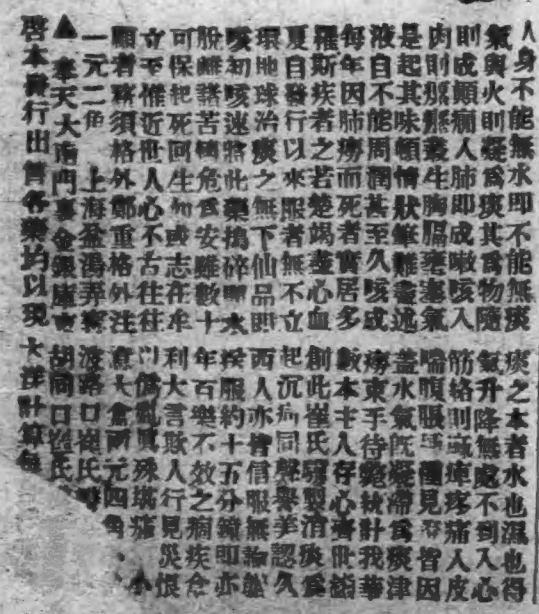 人身不能無水即不能無痰痰之本者水也濕也得
氣與火則凝爲痰其爲物隨氣升降無處不到入心
則成顛癇入肺即成嗽咳入筋絡則麻痺疼痛入皮
肉則瘰癧叢生胸膈壅塞氣喘腹脹種見症皆因
是起其味頓情狀筆難盡述蓋水氣既凝滯爲痰津
液自不能周潤甚至久咳成癆束手待斃統計我華
每年因肺癆而死者實居多數本主人存心濟世
罹斯疾者之苦楚竭盡心血創此崔氏製消痰
夏自發行以來服者無不立起沉疴同聲譽美認久
環地球治痰之無下仙品即西人亦皆信服無論
咳初咳速將此藥搗碎開水服約十五分鐘即亦
脫離諸苦轉危爲安雖數十年百藥不效之痼疾
可保起死回生如或志在牟利大言欺人行見災恨
立至惟近世人心不古往往以僞亂眞殊堪痛小
顧者務須格外鄭重格外注意大盒兩元四角
一元二角 上海盆湯弄渡路口崔氏
▲奉天大南門裏金銀庫胡同口崔氏
啓本發行出售各藥均以現大洋計算每